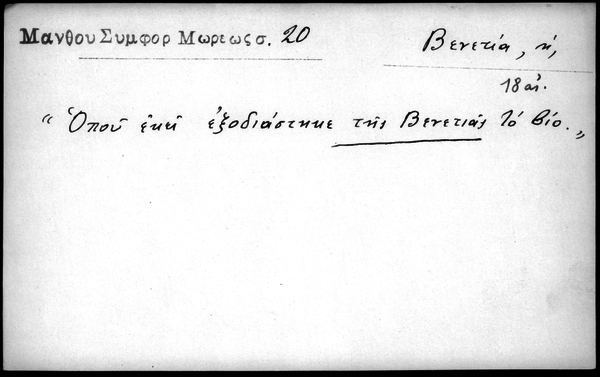 Μανθου Συμφορ Μωρεως σ. 20
Βενετία, ἡ,
18 αἰ.
“Ὁποῦ ἐκεῖ ἐξοδιάστηκε τῆς Βενετιᾶς τὸ βίο.„